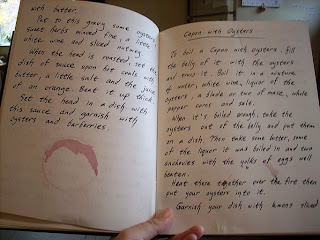 with butter.
Put to this gravy some oysters,
sweet herbs minced fine, a little
white wine and sliced nutmeg.
When the head is roasted set the
dish of sauce upon hot coals with
butter, a little salt and the juice
of an orange. Beat it up thick.
Set the head in a dish with
this sauce and garnish with
oysters and barberries.
Capon with Oysters
To boil a Capon with oysters, fill
the belly of it with the oysters
and truss it. Boil it in a mixture
of water, white wine, liquor of the
oysters, a blade or two of mace, whole
pepper corns and salt.
When it's boiled enough, take the
oysters out of the belly and put them
in a dish. Then take some butter, some
of the liquor it was boiled in and two
anchovies with the yolks of eggs well
beaten.
Heat these together over the fire then
put your oysters into it.
Garnish your dish with lemons sliced